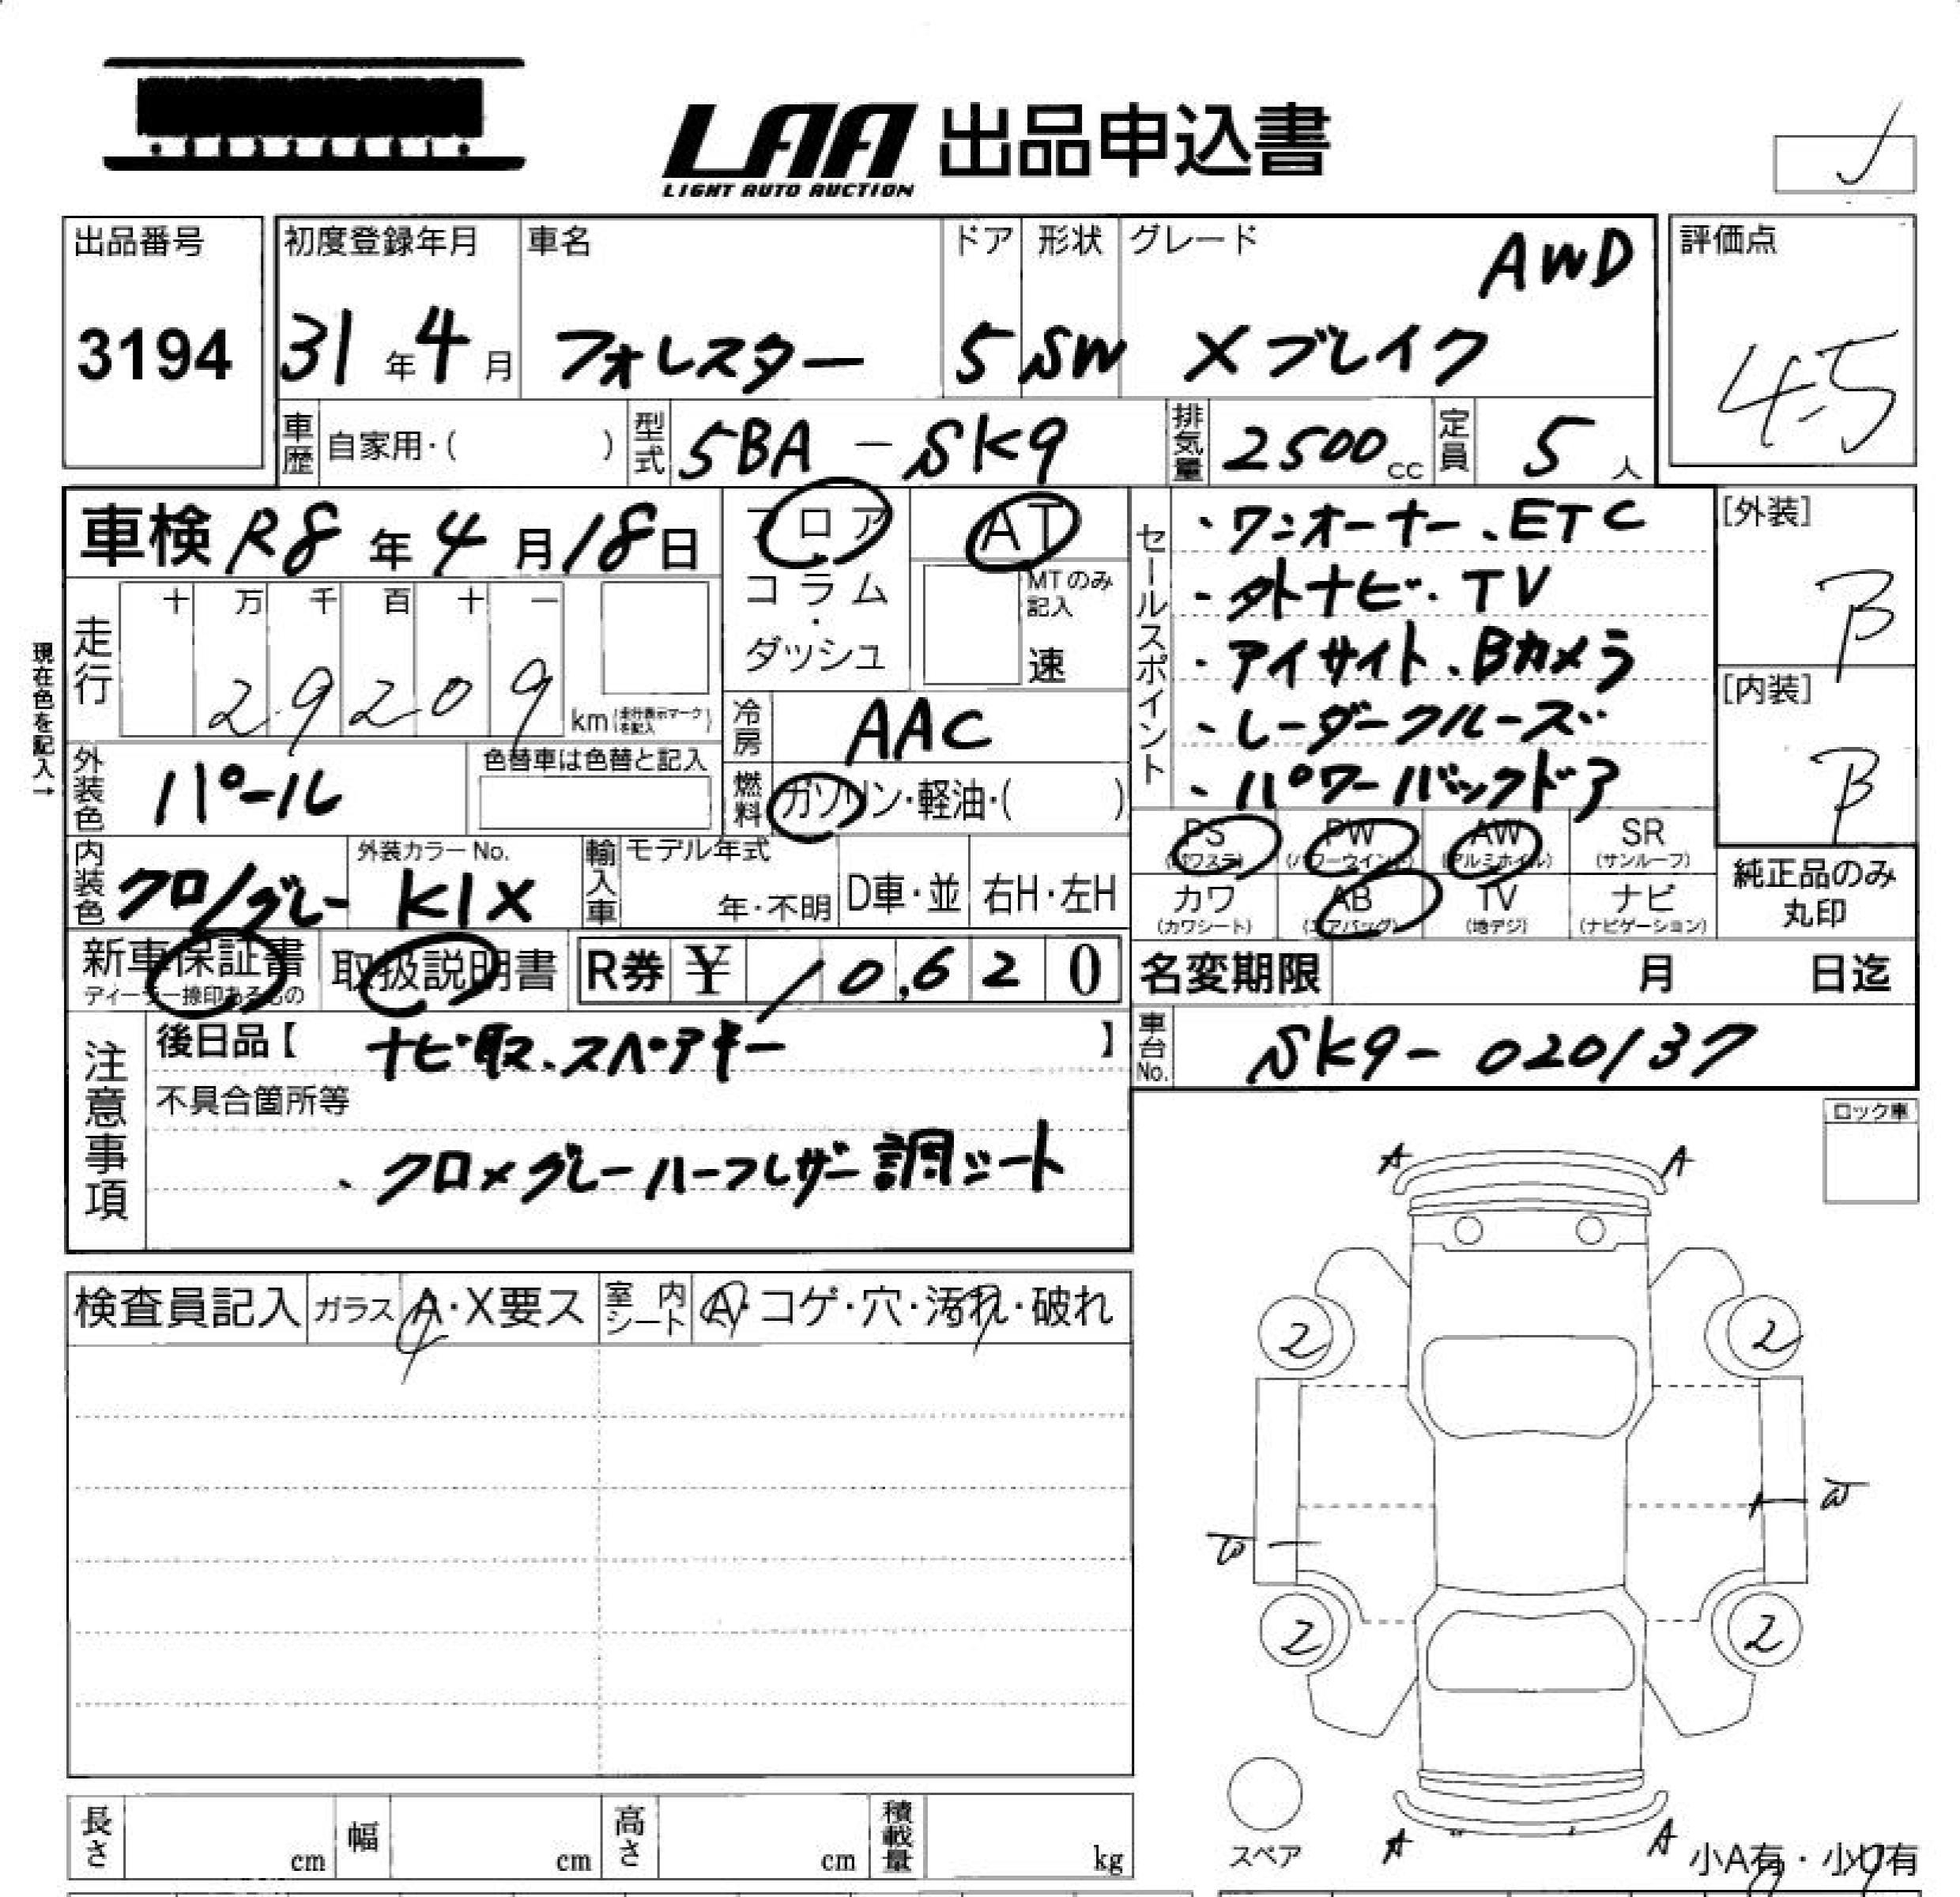 LAA 出品申込書
LIGHT AUTO AUCTION
出品番号
3194
初度登録年月
31年4月
車名
フォレスター
ドア
5
形状
SW
グレード
AWD
Xブレイク
評価点
4.5
車歴 自家用・( )
型式 5BA-SK9
排気量 2500cc
定員 5人
車検 R8年4月18日
フロア
コラム
・
ダッシュ
AT
MTのみ
記入
速
現在色を記入→
走行
十 万 千 百 十 一
29209
km(走行表示マークを記入)
冷房 AAC
外装色 パール
色替車は色替と記入
燃料 ガソリン・軽油・( )
内装色 クロ/グレー
外装カラーNo.
K1X
輸入車
モデル年式
年・不明
D車・並
右H・左H
セールスポイント
・ワンオーナー、ETC
・外ナビ・TV
・アイサイト、Bカメラ
・レーダークルーズ
・パワーバックドア
[外装]
B
[内装]
B
PS
(パワステ)
PW
(パワーウインド)
AW
(アルミホイル)
SR
(サンルーフ)
カワ
(カワシート)
AB
(エアバッグ)
TV
(地デジ)
ナビ
(ナビゲーション)
純正品のみ
丸印
新車保証書
ディーラー捺印あるもの
取扱説明書
R券 ¥ 10,620
名変期限 月 日迄
車台No. SK9-020137
注意事項
後日品【 ナビ取、スペアキー 】
不具合箇所等
・クロ×グレーハーフレザー調シート
ロック車
検査員記入
ガラス A・X要ス
室内シート A・コゲ・穴・汚れ・破れ
A A
2 2
2 2
A A
スペア
小A有・小U有
長さ cm
幅 cm
高さ cm
積載量 kg